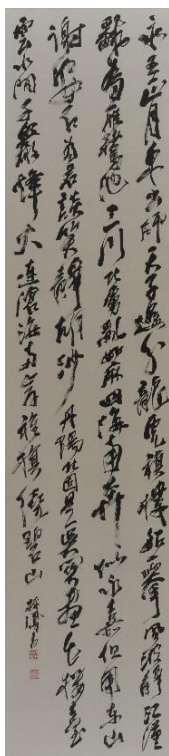 永王正月東出師天子遙分龍虎旗樓船一舉風波靜江漢
翻為雁鶩池三川北虜亂如麻四海南奔似永嘉但用東山
謝安石為君談笑靜胡沙丹陽北固是吳關畫出樓臺
雲水間千巖烽火連滄海兩岸旌旗繞碧山